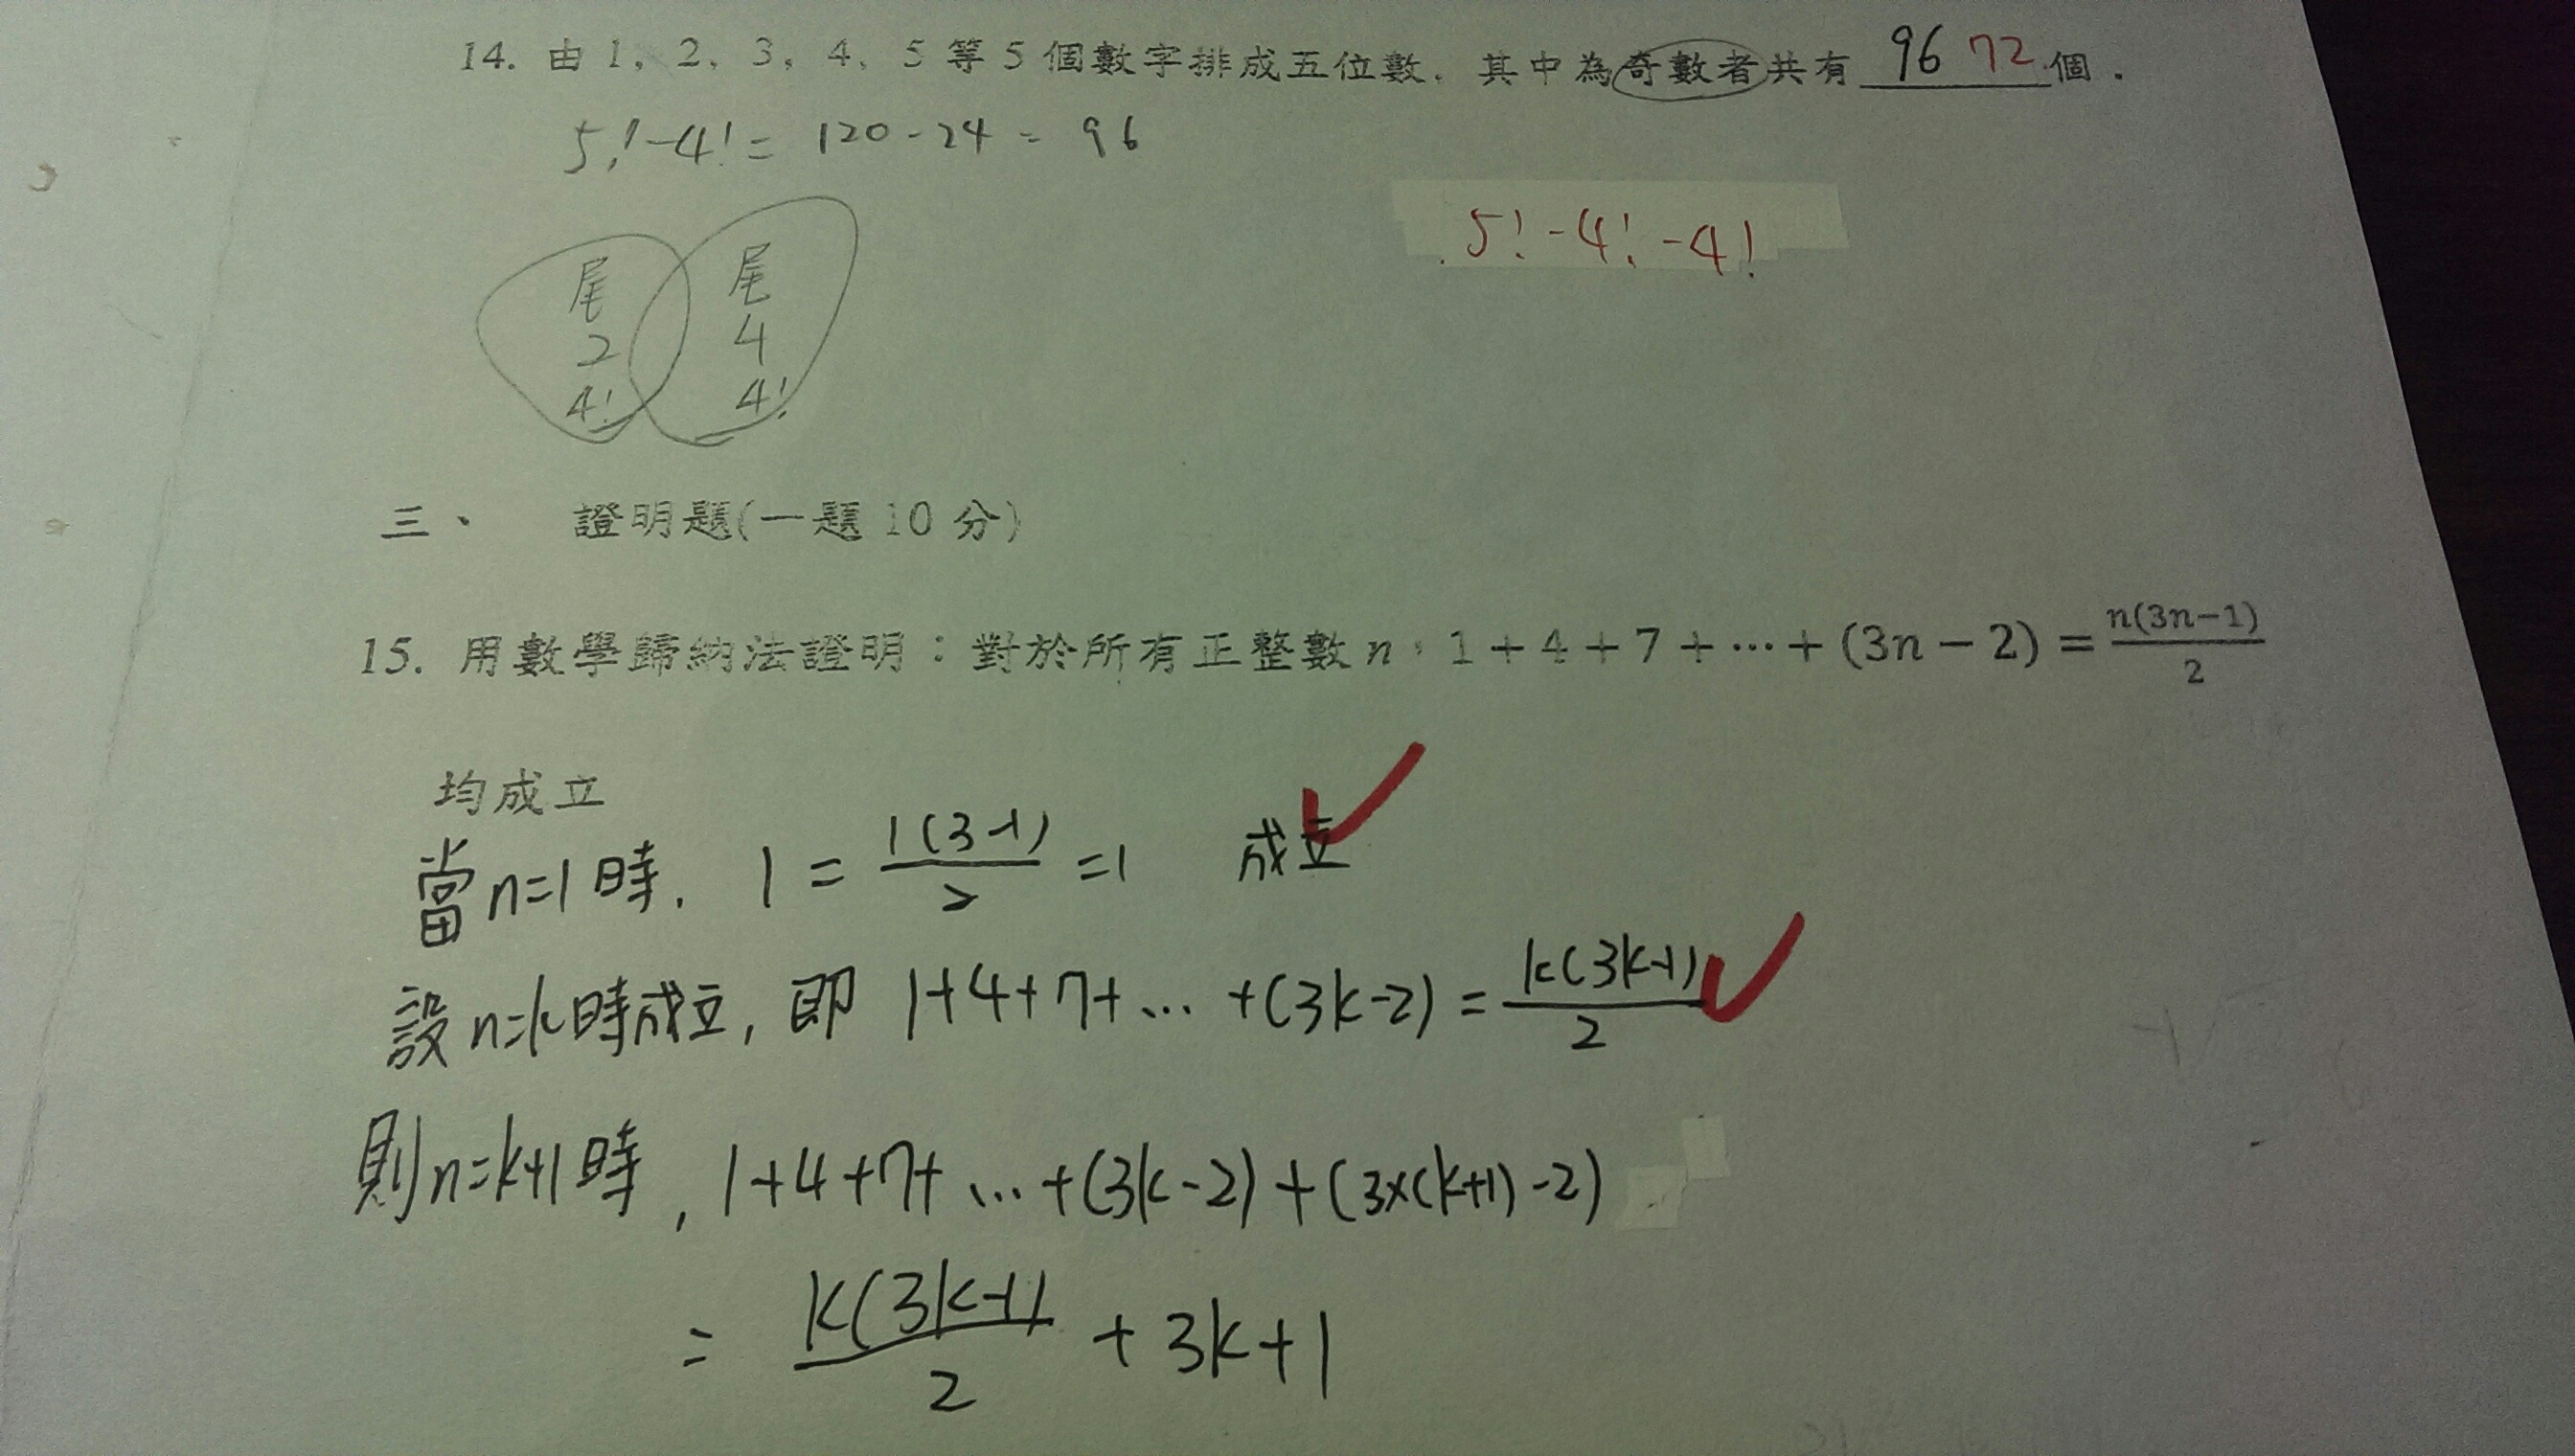 14. 由 1、2、3、4、5 等 5 個數字排成五位數，其中為奇數者共有 96 72 個．
5!-4!= 120-24 = 96
5!-4!-4!
尾 2 4!
尾 4 4!
三、 證明題(一題 10 分)
15. 用數學歸納法證明：對於所有正整數 n，1 + 4 + 7 + ⋯ + (3n − 2) = n(3n−1)/2
均成立
當n=1時, 1 = 1(3-1)/2 =1 成立
設n=k時成立, 即 1+4+7+…+(3k-2) = k(3k-1)/2
則n=k+1時, 1+4+7+…+(3k-2)+(3×(k+1)-2)
= k(3k-1)/2 + 3k+1